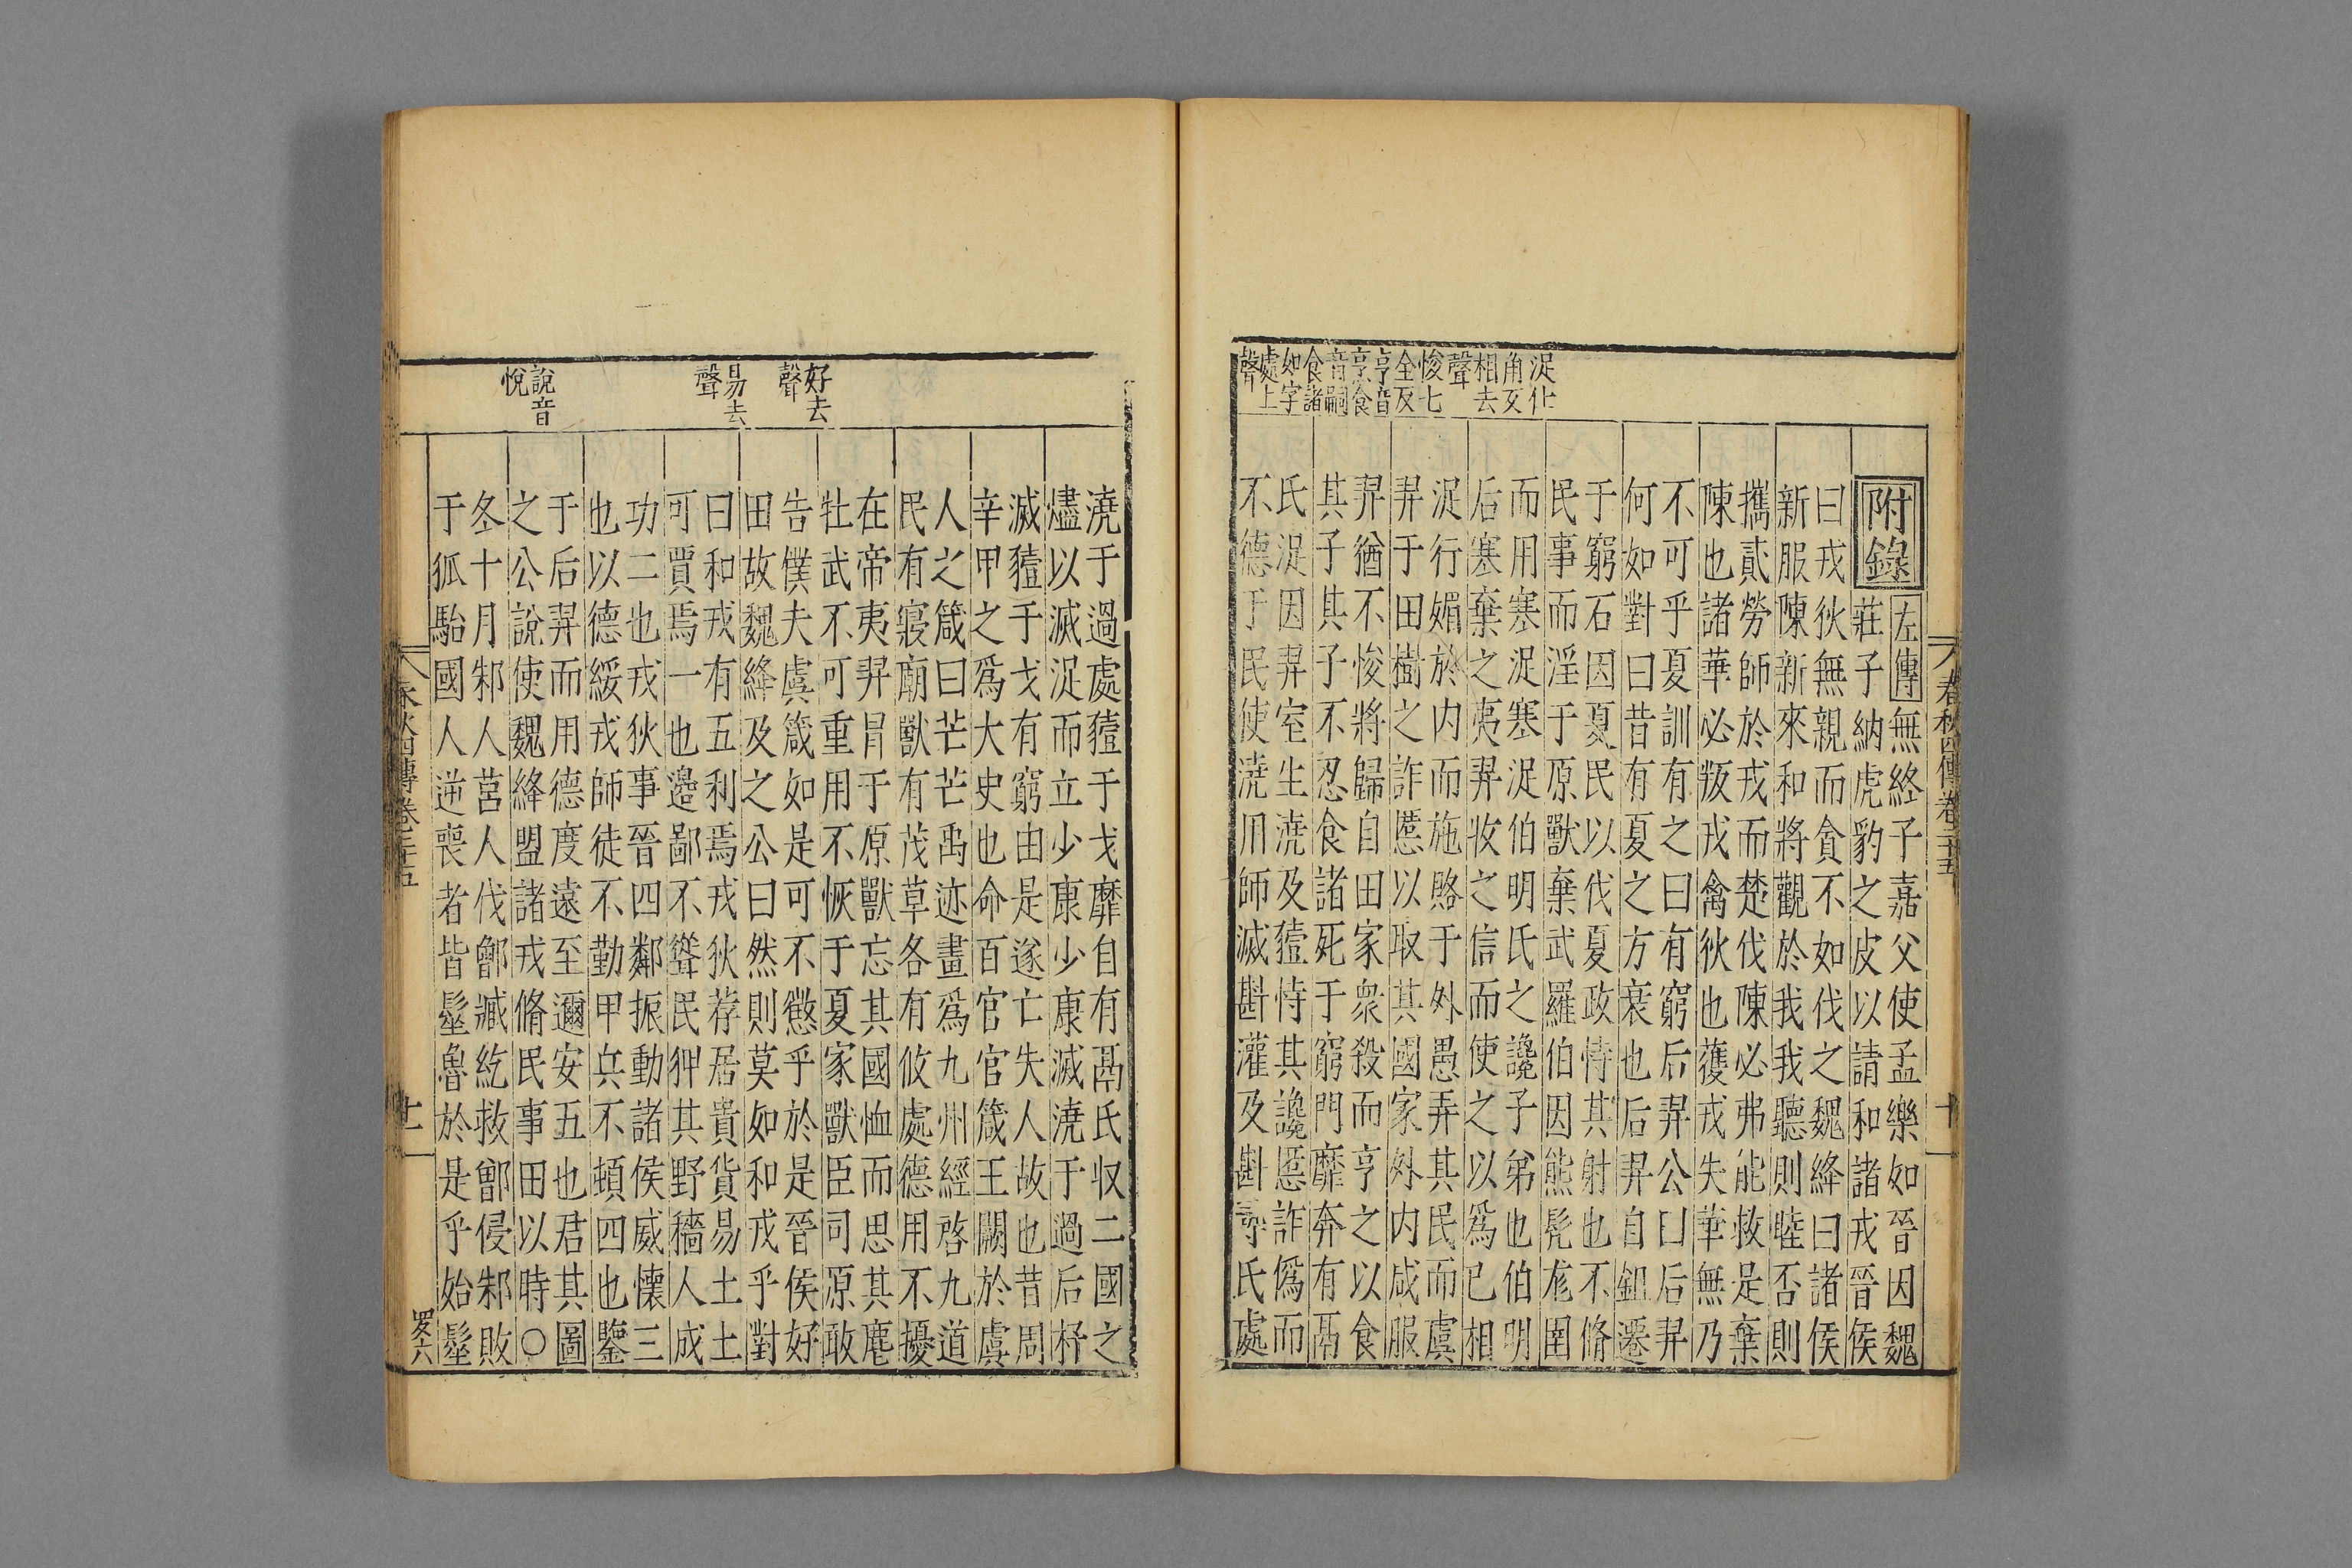 浞仕
角反
相去
聲
悛七
全反
亨音
烹食
音嗣
食諸
如字
處上
聲
春秋四傳卷二十五 十
附錄左傳無終子嘉父使孟樂如晉因魏
莊子納虎豹之皮以請和諸戎晉侯
曰戎狄無親而貪不如伐之魏絳曰諸侯
新服陳新來和將觀於我我聽則睦否則
攜貳勞師於戎而楚伐陳必弗能救是棄
陳也諸華必叛戎禽狄也獲戎失華無乃
不可乎夏訓有之曰有窮后羿公曰后羿
何如對曰昔有夏之方衰也后羿自鉏遷
于窮石因夏民以伐夏政恃其射也不脩
民事而淫于原獸棄武羅伯因熊髡尨圉
而用寒浞寒浞伯明氏之讒子弟也伯明
后寒棄之夷羿收之信而使之以爲己相
浞行媚於内而施賂于外愚弄其民而虞
羿于田樹之詐慝以取其國家外内咸服
羿猶不悛將歸自田家衆殺而亨之以食
其子其子不忍食諸死于窮門靡奔有鬲
氏浞因羿室生澆及豷恃其讒慝詐僞而
不德于民使澆用師滅斟灌及斟尋氏處
好去
聲
易去
聲
說音
悅
澆于過處豷于戈靡自有鬲氏收二國之
燼以滅浞而立少康少康滅澆于過后杼
滅豷于戈有窮由是遂亡失人故也昔周
辛甲之爲大史也命百官官箴王闕於虞
人之箴曰芒芒禹迹畫爲九州經啓九道
民有寢廟獸有茂草各有攸處德用不擾
在帝夷羿冒于原獸忘其國恤而思其麀
牡武不可重用不恢于夏家獸臣司原敢
告僕夫虞箴如是可不懲乎於是晉侯好
田故魏絳及之公曰然則莫如和戎乎對
曰和戎有五利焉戎狄荐居貴貨易土土
可賈焉一也邊鄙不聳民狎其野穡人成
功二也戎狄事晉四鄰振動諸侯威懷三
也以德綏戎師徒不勤甲兵不頓四也鑒
于后羿而用德度遠至邇安五也君其圖
之公說使魏絳盟諸戎脩民事田以時○
冬十月邾人莒人伐鄫臧紇救鄫侵邾敗
于狐駘國人逆喪者皆髽魯於是乎始髽
春秋四傳卷二十五 十一